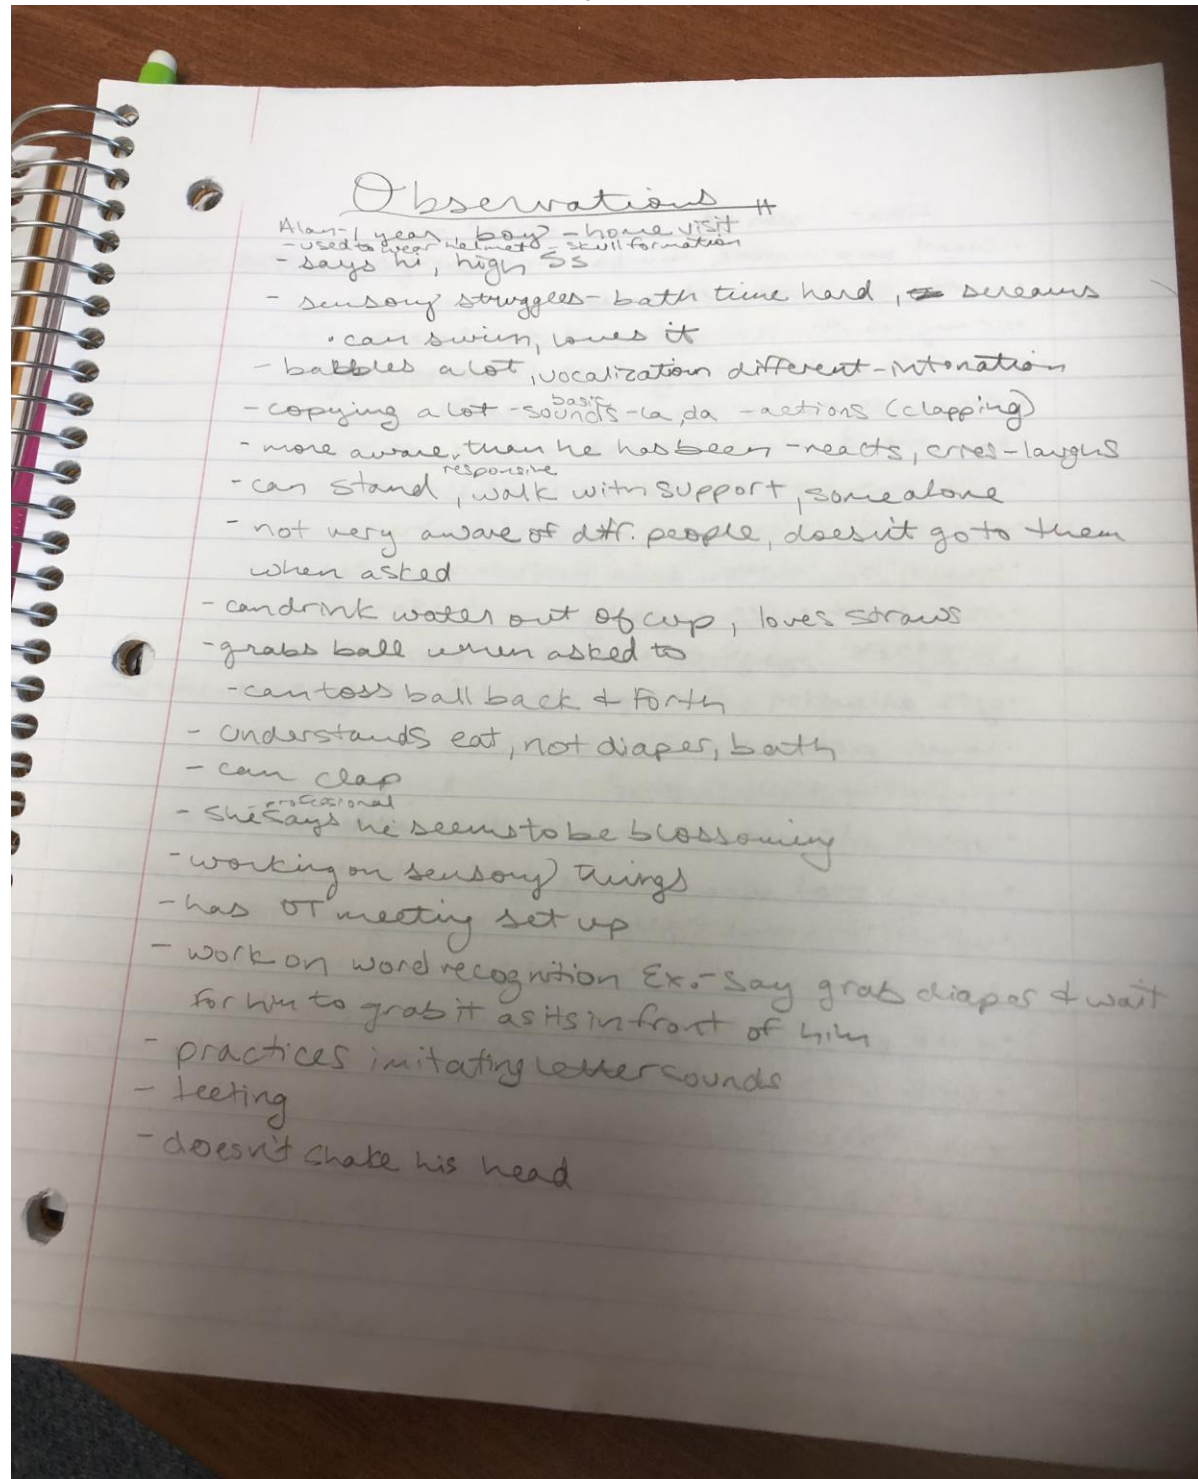 Observations
Alan-1 year, boy - home visit
- used to wear helmet - skull formation
- says hi, high 5s
- sensory struggles - bath time hard, screams
• can swim, loves it
- babbles a lot, vocalization different - intonation
basic
- copying a lot - sounds - la, da - actions (clapping)
- more aware, than he has been - reacts, cries - laughs
responsive
- can stand, walk with support, some alone
- not very aware of diff. people, doesn't go to them
when asked
- can drink water out of cup, loves straws
- grabs ball when asked to
- can toss ball back & forth
- understands eat, not diaper, bath
- can clap
professional
- she says he seems to be blossoming
- working on sensory things
- has OT meeting set up
- work on word recognition Ex. - Say grab diaper & wait
for him to grab it as its in front of him
- practices imitating letter sounds
- teeting
- doesn't shake his head